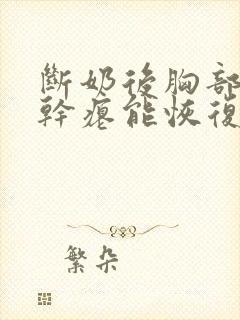 斷奶後胸部
幹癟能恢復
繁朵